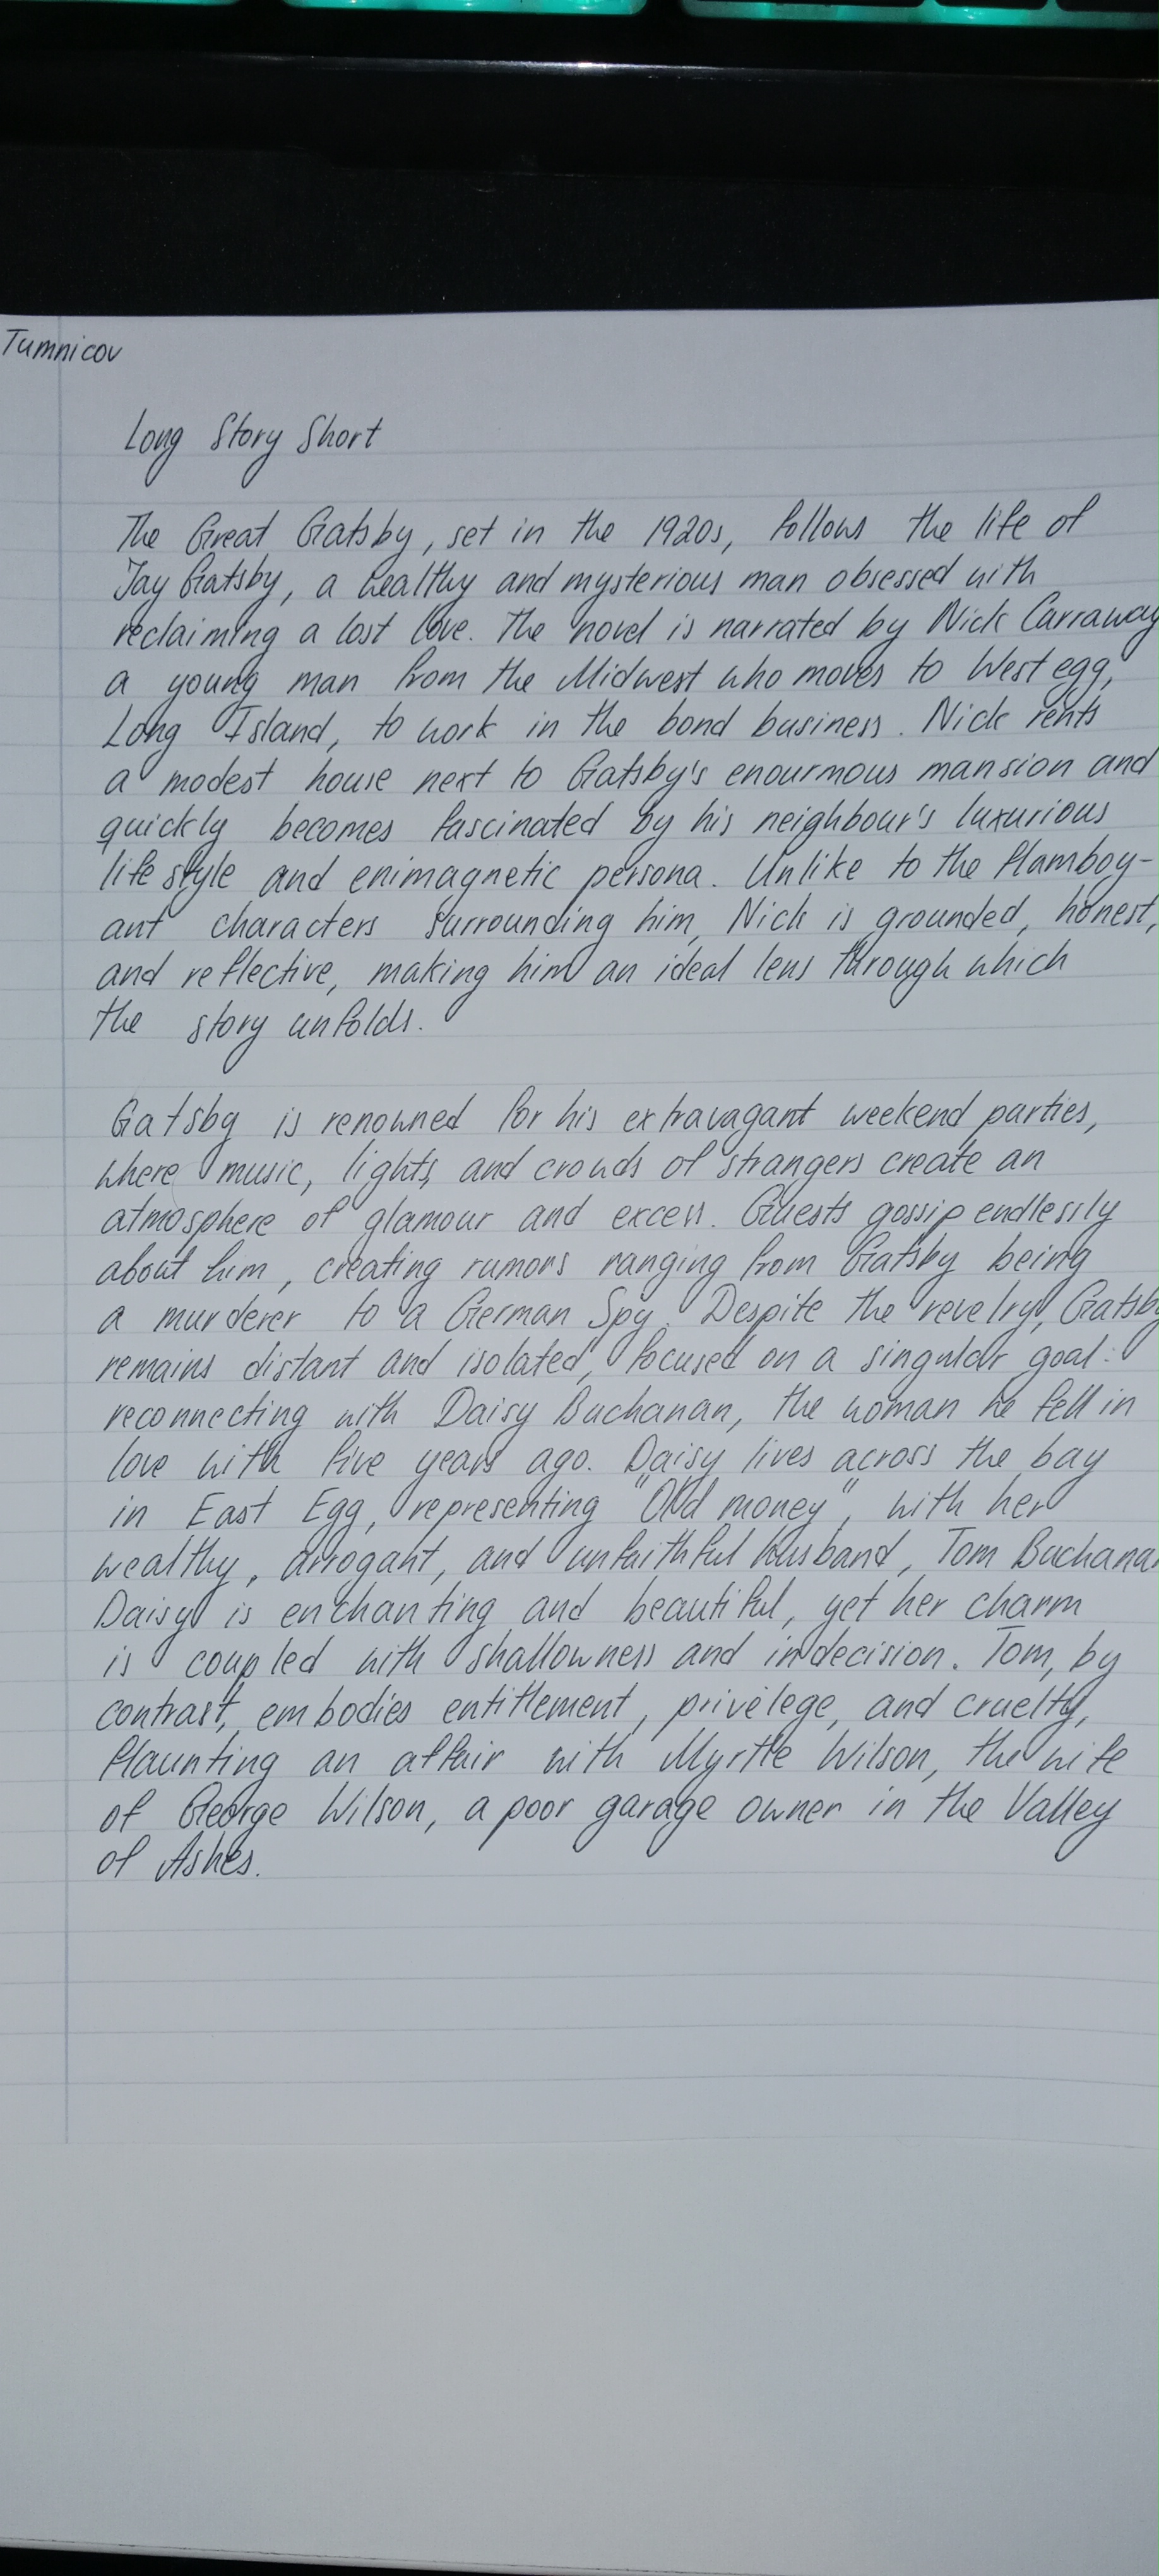 Tumnicov
Long Story Short
The Great Gatsby, set in the 1920s, follows the life of
Jay Gatsby, a wealthy and mysterious man obsessed with
reclaiming a lost love. The novel is narrated by Nick Carraway
a young man from the Midwest who moves to West egg,
Long Island, to work in the bond business. Nick rents
a modest house next to Gatsby's enourmous mansion and
quickly becomes fascinated by his neighbour's luxurious
life style and enimagnetic persona. Unlike to the flamboy-
ant characters surrounding him, Nick is grounded, honest,
and reflective, making him an ideal lens through which
the story unfolds.
Gatsby is renowned for his extravagant weekend parties,
where music, lights, and crowds of strangers create an
atmosphere of glamour and excess. Guests gossip endlessly
about him, creating rumors ranging from Gatsby being
a murderer to a German Spy. Despite the revelry, Gatsby
remains distant and isolated, focused on a singular goal:
reconnecting with Daisy Buchanan, the woman he fell in
love with five years ago. Daisy lives across the bay
in East Egg, representing "Old money", with her
wealthy, arrogant, and unfaithful husband, Tom Buchanan
Daisy is enchanting and beautiful, yet her charm
is coupled with shallowness and indecision. Tom, by
contrast, embodies entitlement, privelege, and cruelty,
flaunting an affair with Myrtle Wilson, the wife
of George Wilson, a poor garage owner in the Valley
of Ashes.